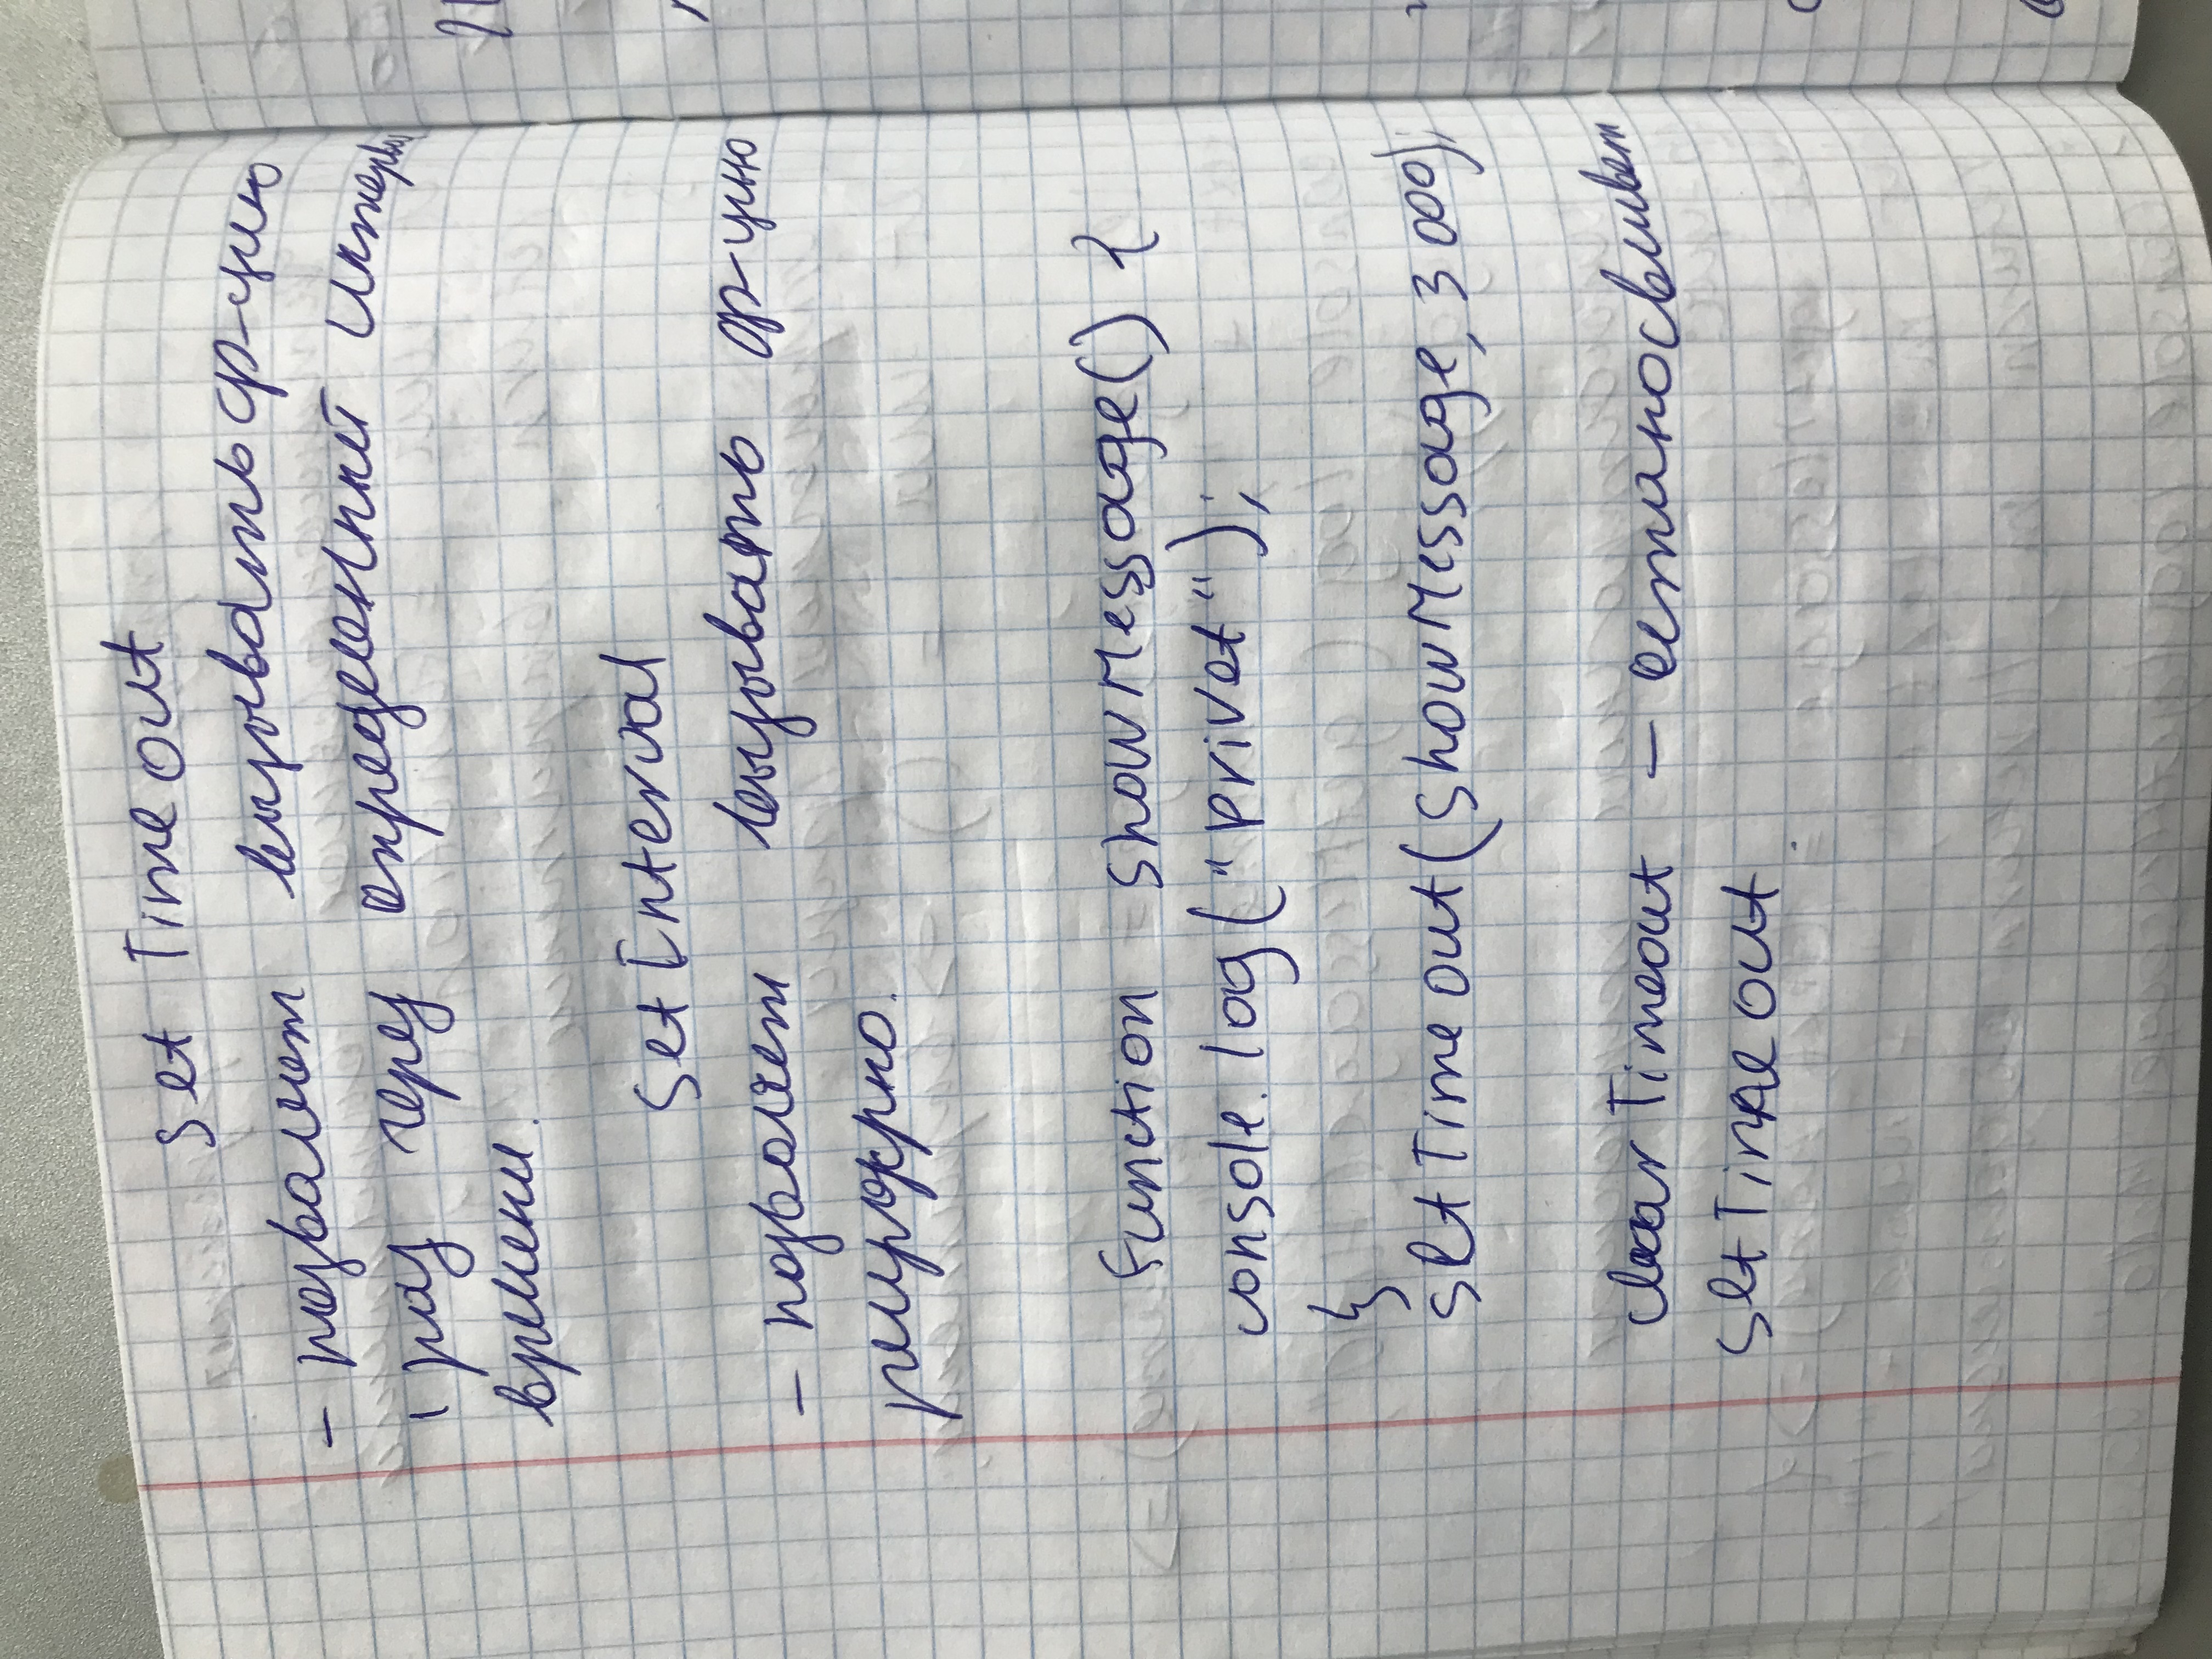 set Timeout
– позволяет вызывать ф-цию
1 раз через определенный интервал
времени.
SetInterval
– позволяет вызывать ф-цию
function showMessage() {
console.log("privet");
}
setTimeout(showMessage, 3000);
clearTimeout –
setTimeout.